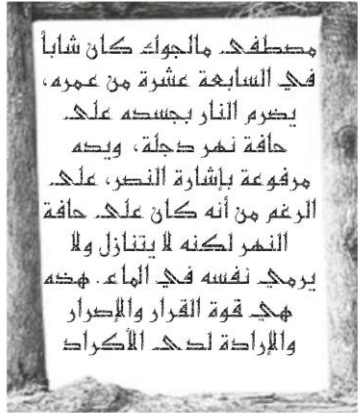 مصطفى مالجوك كان شاباً
في السابعة عشرة من عمره،
يضرم النار بجسده على
حافة نهر دجلة، ويده
مرفوعة بإشارة النصر، على
الرغم من أنه كان على حافة
النهر لكنه لا يتنازل ولا
يرمي نفسه في الماء. هذه
هي قوة القرار والإصرار
والإرادة لدى الأكراد